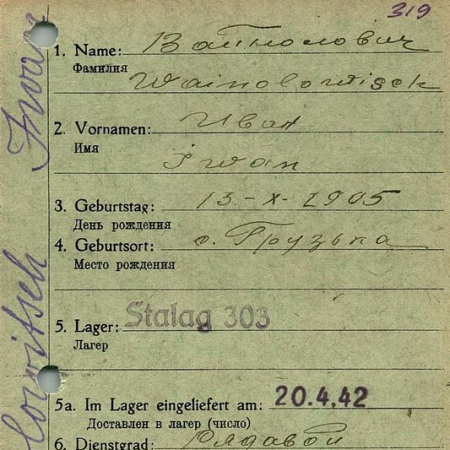 319
1. Name: Войнолович
Фамилия
Woinolowitsch
2. Vornamen: Иван
Имя
Iwan
3. Geburtstag: 13-X-1905
День рождения
4. Geburtsort: с. Грузька
Место рождения
5. Lager: Stalag 303
Лагерь
5a. Im Lager eingeliefert am: 20.4.42
Доставлен в лагерь (число)
6. Dienstgrad: Рядавой
Iwan
lowitsch